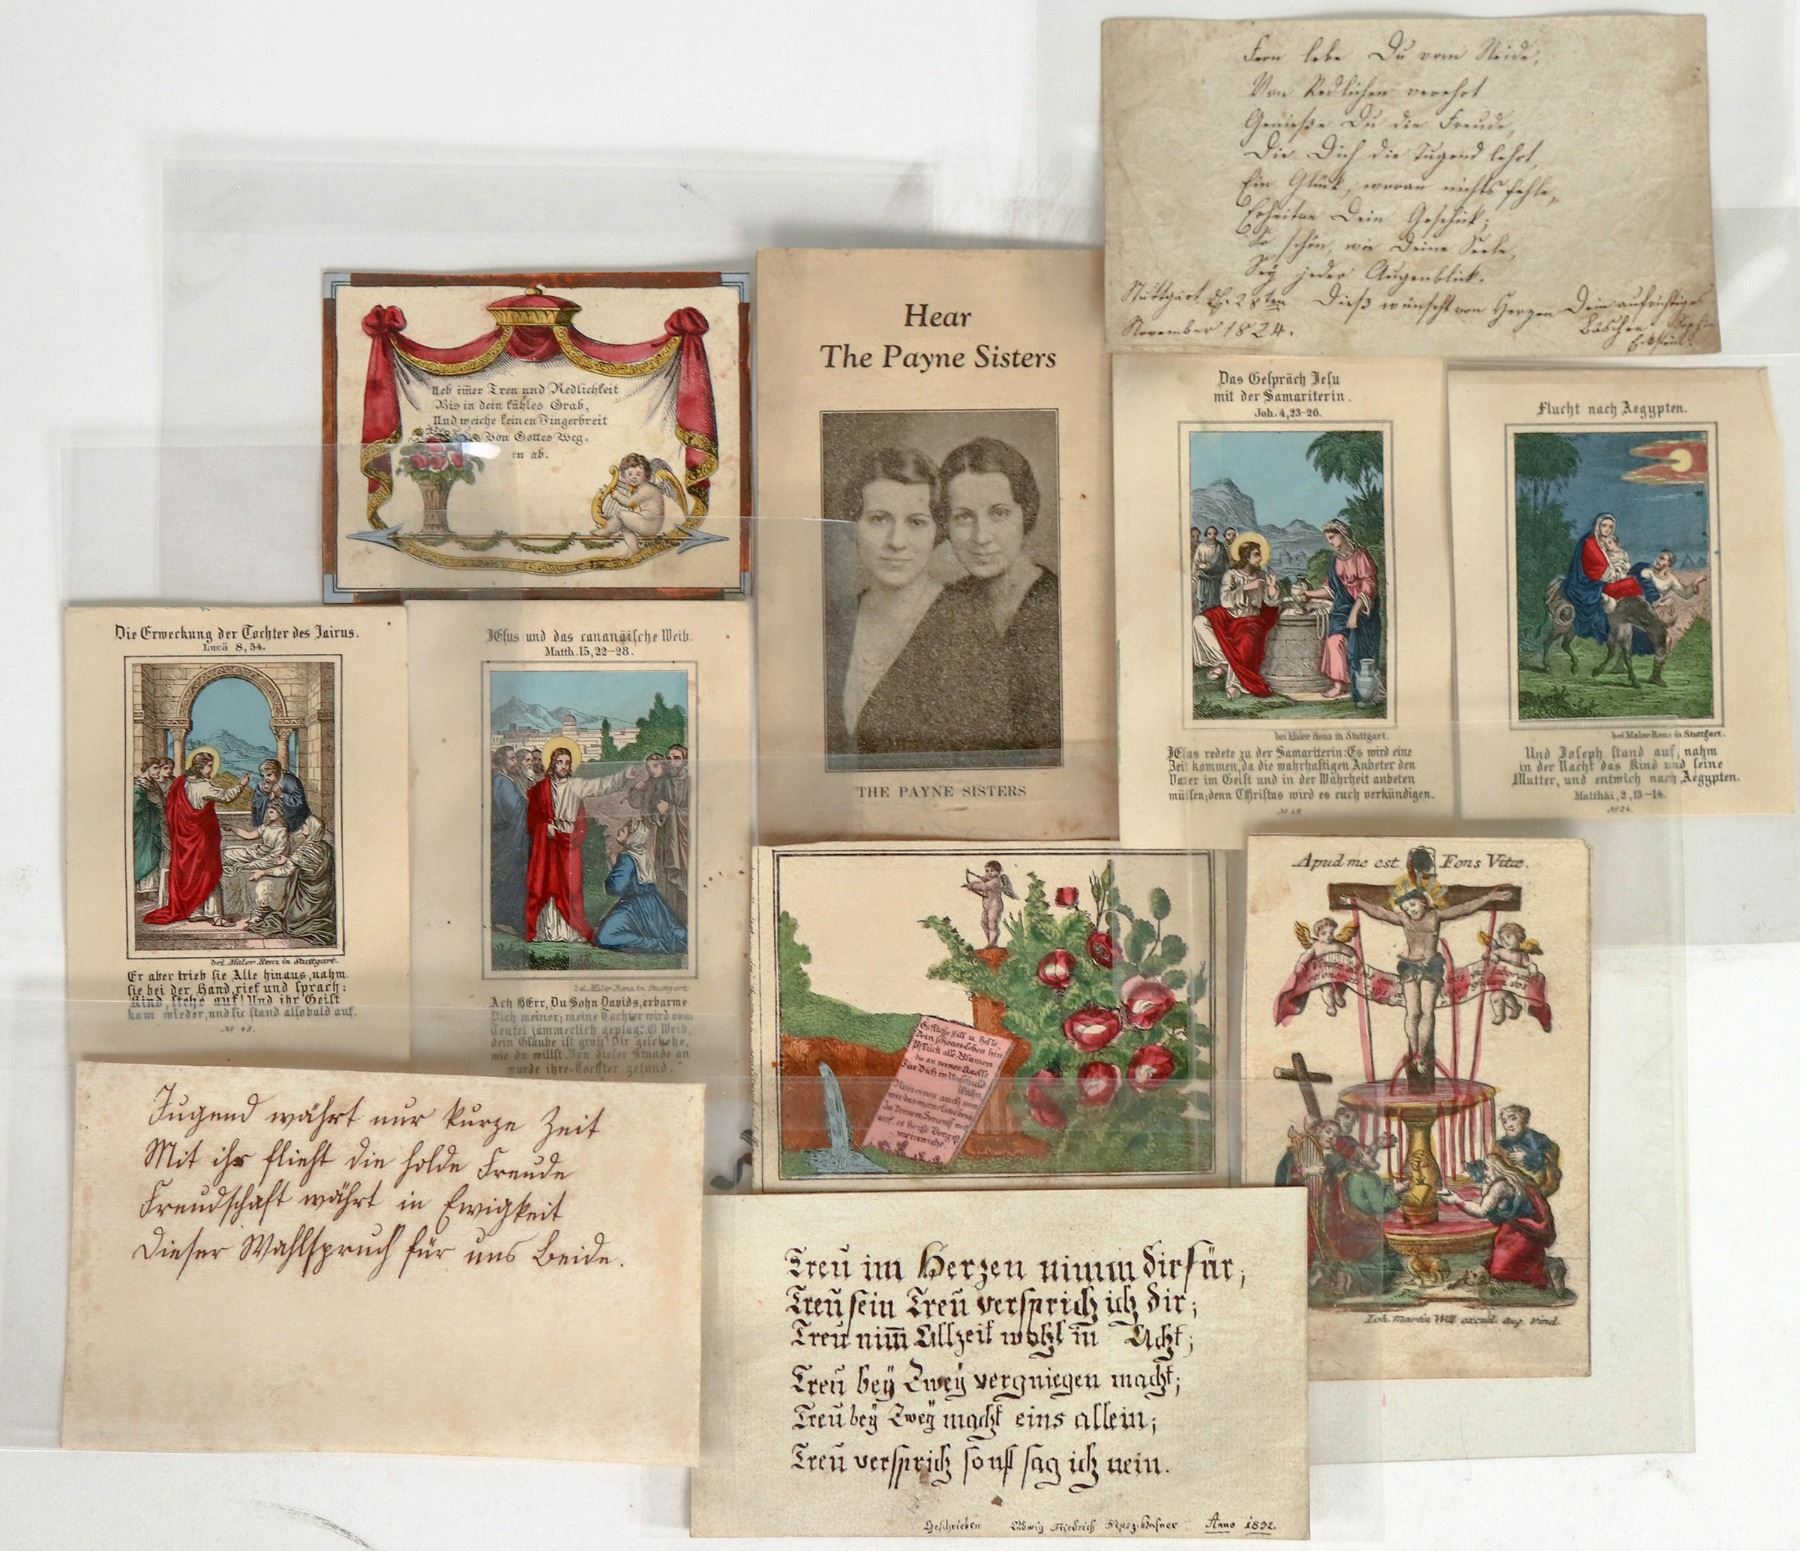 Fern lebe Du vom Neide,
Von Redlichen verehrt
Genieße Du die Freude,
Die Dich die Tugend lehrt,
Ein Glück, woran nichts fehle,
Erheitre Dein Geschick;
So schön, wie Deine Seele,
Sey jeder Augenblick.
Stuttgart d. 28ten
November 1824.
Dieß wünscht von Herzen Dein aufrichtiges
Bäschen
Ueb im̅er Treu und Redlichkeit
Bis in dein kühles Grab,
Und weiche keinen Fingerbreit
Von Gottes Weg-
en ab.
Hear
The Payne Sisters
THE PAYNE SISTERS
Das Gespräch Jesu
mit der Samariterin.
Joh. 4,23-26.
bei Maler Renz in Stuttgart.
JEsus redete zu der Samariterin: Es wird eine
Zeit kommen, da die wahrhaftigen Anbeter den
Vater im Geist und in der Wahrheit anbeten
müssen; denn CHristus wird es euch verkündigen.
Flucht nach Aegypten.
bei Maler Renz in Stuttgart.
Und Joseph stand auf, nahm
in der Nacht das Kind und seine
Mutter, und entwich nach Aegypten.
Matthäi, 2, 13-14.
No 24.
Die Erweckung der Tochter des Jairus.
Lucä 8, 54.
bei Maler Renz in Stuttgart.
Er aber trieb sie Alle hinaus, nahm
sie bei der Hand, rief und sprach:
Kind, stehe auf! Und ihr Geist
kam wieder, und sie stand alsobald auf.
No 43.
JEsus und das cananäische Weib.
Matth. 15, 22-28.
bei Maler Renz in Stuttgart
Ach HErr, Du Sohn Davids, erbarme
Dich meiner; meine Tochter wird vom
Teufel jämmerlich geplagt. O Weib,
dein Glaube ist groß! Dir geschehe,
wie du willst. Von dieser Stunde an
wurde ihre Tochter gesund.
Es fliesse still u. helle
Dein schönes Leben hin
Pflück alle Blumen
die an seiner Quelle
Für Dich in Unschuld
Apud me est Fons Vitæ.
Joh. Martin Will excud. aug. vind.
Jugend währt nur kurze Zeit
Mit ihr flieht die holde Freude
Freundschaft währt in Ewigkeit
Dieser Wahlspruch für uns Beide.
Treu im Herzen nimm dir für;
Treu sein Treu versprich ich dir;
Treu nim̅ Allzeit wohl in Acht;
Treu bey Zwey vergniegen macht;
Treu bey Zwey macht eins allein;
Treu versprich sonst sag ich nein.
Geschrieben Ludwig Friedrich Anno 1832.